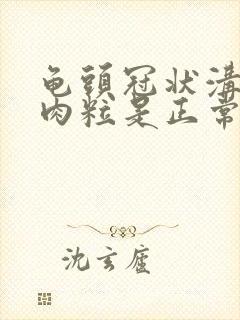 龟頭冠状溝
肉粒是正常
沈玄廬